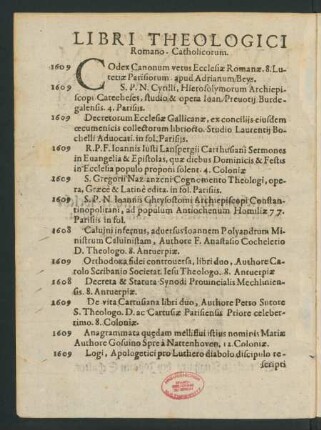 LIBRI THEOLOGICI
Romano-Catholicorum.
1609 COdex Canonum vetus Ecclesiæ Romanæ. 8. Lu-
tetiæ Parisiorum apud Adrianum Beys.
1609 S. P. N. Cyrilli, Hierosolymorum Archiepi-
scopi Catecheses, studio & opera Ioan. Preuotij Burde-
galensis. 4. Parisiis.
1609 Decretorum Ecclesiæ Gallicanæ, ex conciliis eiusdem
œcumenicis collectorum libri octo. Studio Laurentij Bo-
chelli Aduocati. in fol. Parisiis.
1608 R. P. F. Ioannis Iusti Lanspergii Carthusiani Sermones
in Euangelia & Epistolas, quæ diebus Dominicis & Festis
in Ecclesia populo proponi solent. 4. Coloniæ
1609 S. Gregorii Nazanzeni Cognomento Theologi, ope-
ra, Græcè & Latinè edita. in fol. Parisiis.
1609 S. P. N. Ioannis Chrysostomi Archiepiscopi Constan-
tinopolitani, ad populum Antiochenum Homiliæ 77.
Parisiis in fol.
1608 Caluini infernus, aduersus Ioannem Polyandrum Mi-
nistrum Caluinistam, Authore F. Anastasio Cochelerio
D. Theologo. 8. Antuerpiæ.
1609 Orthodoxa fidei controuersa, libri duo, Authore Ca-
rolo Scribanio Societat. Iesu Theologo. 8. Antuerpiæ
1608 Decreta & Statuta Synodi Prouincialis Mechlinien-
sis. 8. Antuerpiæ.
1609 De vita Cartusana libri duo, Authore Petro Sutore
S. Theologo. D. ac Cartusiæ Parisiensis Priore celeber-
rimo. 8. Coloniæ.
1609 Anagrammata quędam melliflui istius nominis Mariæ
Authore Gosuino Spre à Nattenhoven, 12. Coloniæ.
1609 Logi, Apologetici pro Luthero diabolo discipulo re-
scripti